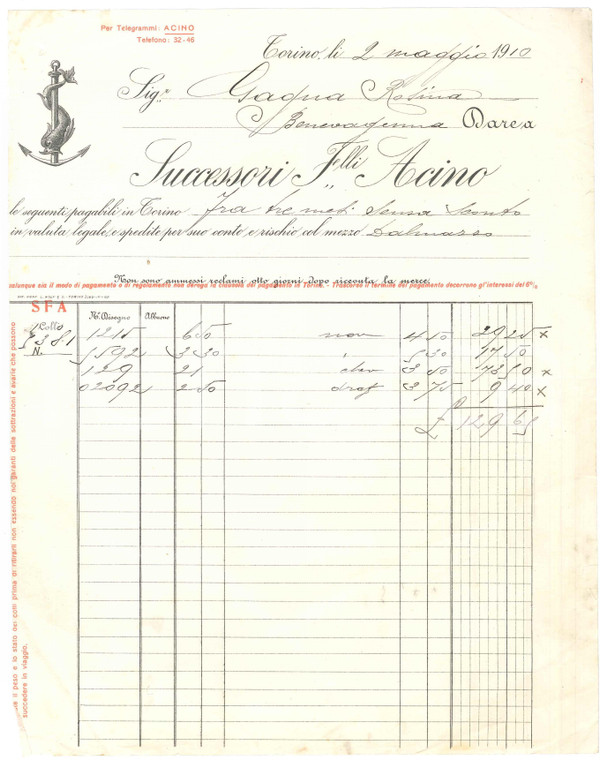 Per Telegrammi: ACINO
Telefono: 32-46
Torino, li 2 maggio 1910
Sig.ra Gagna Rosina
Benevagenna Dare a
Successori F.lli Acino
le seguenti pagabili in Torino Fra tre mesi Senza Sconto
in valuta legale, e spedite per suo conto e rischio col mezzo Dalmasso
Non sono ammessi reclami otto giorni dopo ricevuta la merce.
Qualunque sia il modo di pagamento o di regolamento non deroga la clausola del pagamento in Torino. - Trascorso il termine del pagamento decorrono gl'interessi del 6%
SFA
N. Disegno Albumo
1 Collo
N. 3381
1215 6 50 nov 4 50 29 25 x
1592 3 30 " 5 30 17 50
129 21 3 50 73 50 x
02092 2 50 3 75 9 40 x
£ 129 65
il peso e lo stato dei colli prima di ritirarli non essendo noi garanti delle sottrazioni e avarie che possono
succedere in viaggio.